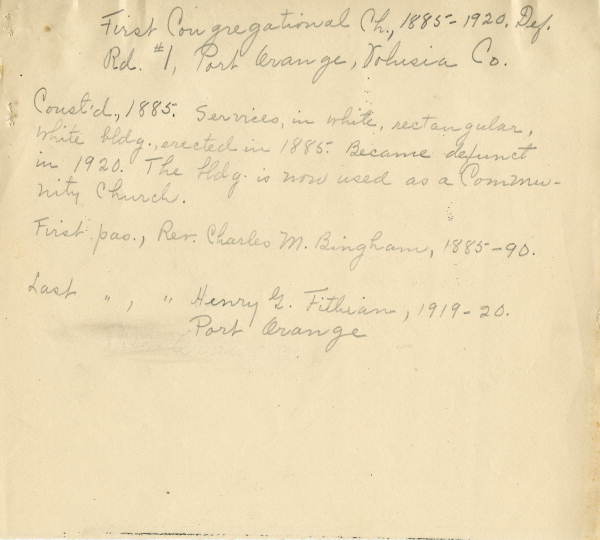 First Congregational Ch., 1885-1920. Def.
Rd. #1, Port Orange, Volusia Co.
Const'd., 1885. Services, in white, rectangular,
white bldg., erected in 1885. Became defunct
in 1920. The bldg. is now used as a Commu-
nity Church.
First pas., Rev. Charles M. Bingham, 1885-90.
Last " , " Henry G. Fithian, 1919-20.
Port Orange